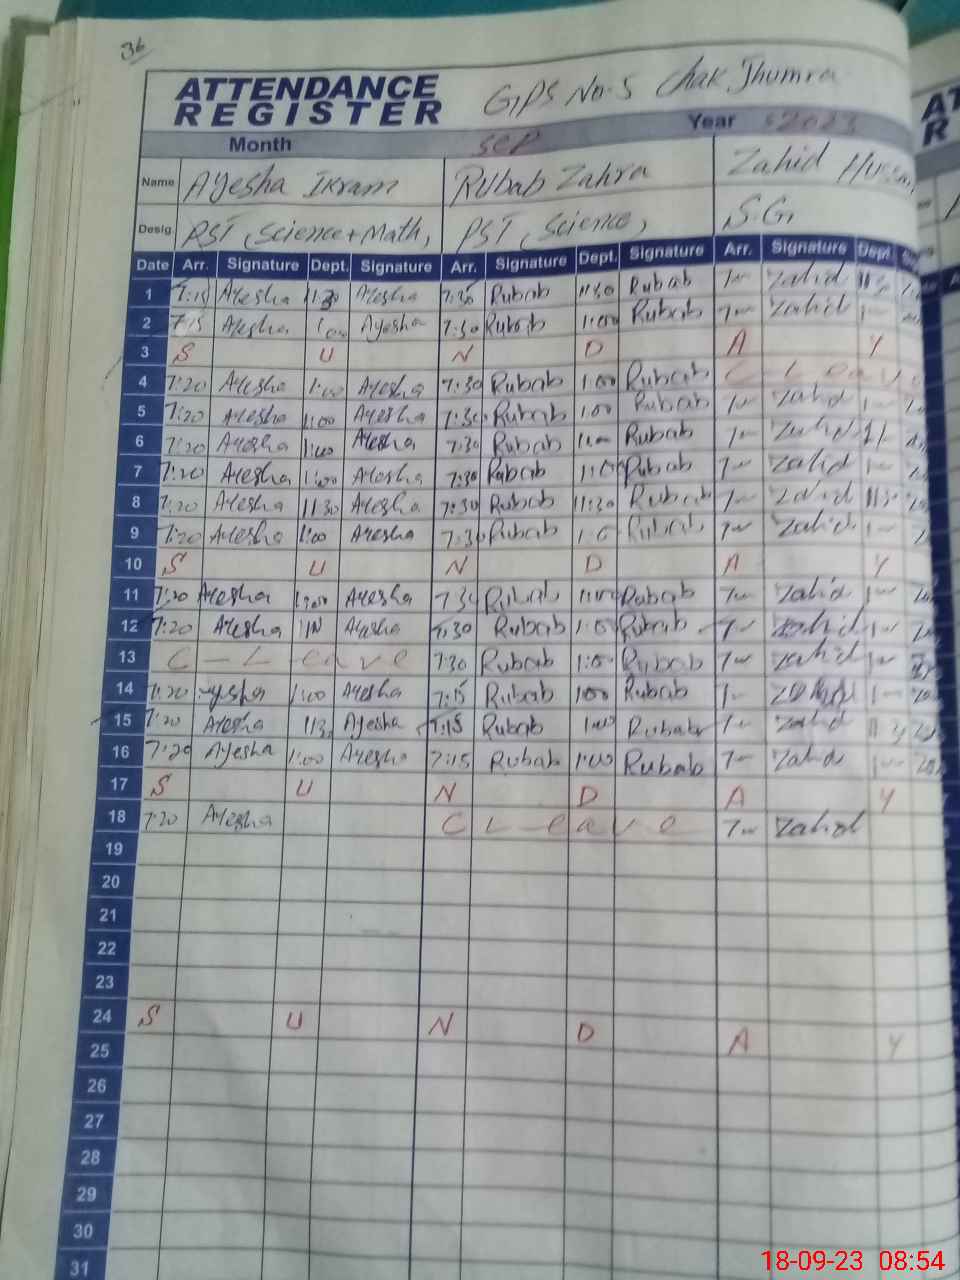 36
ATTENDANCE GPS No. 5 Chak Jhumra
REGISTER
Month Sep Year 2023
Name Ayesha Ikram Rubab Zahra Zahid
Desig. PST (Science+Math) PST (Science) S.G.
Date Arr. Signature Dept. Signature Arr. Signature Dept. Signature Arr. Signature Dept.
1 7:15 Ayesha 11:30 Ayesha 7:30 Rubab 11:30 Rubab Zahid
2 7:15 Ayesha Ayesha 7:30 Rubab 1:00 Rubab Zahid
3 S U N D A Y
4 7:20 Ayesha 1:00 Ayesha 7:30 Rubab 1:00 Rubab C Leave
5 7:20 Ayesha 1:00 Ayesha 7:30 Rubab 1:00 Rubab Zahid
6 7:20 Ayesha 1:00 Ayesha 7:30 Rubab Rubab Zahid
7 7:20 Ayesha 1:00 Ayesha 7:30 Rubab 1:00 Rubab Zahid
8 7:20 Ayesha 11:30 Ayesha 7:30 Rubab 11:30 Rubab Zahid
9 7:20 Ayesha 1:00 Ayesha 7:30 Rubab Rubab Zahid
10 S U N D A Y
11 7:20 Ayesha Ayesha 7:30 Rubab 1:00 Rubab Zahid
12 7:20 Ayesha Ayesha 7:30 Rubab 1:00 Rubab Zahid
13 C-Leave 7:30 Rubab 1:00 Rubab Zahid
14 7:20 Ayesha 1:00 Ayesha 7:15 Rubab 1:00 Rubab Zahid
15 7:20 Ayesha Ayesha 7:15 Rubab 1:00 Rubab Zahid
16 7:20 Ayesha 1:00 Ayesha 7:15 Rubab 1:00 Rubab Zahid
17 S U N D A Y
18 7:20 Ayesha C Leave Zahid
19
20
21
22
23
24 S U N D A Y
25
26
27
28
29
30
31
18-09-23 08:54